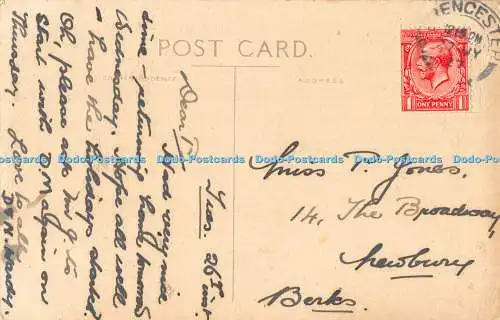 POST CARD.
CORRESPONDENCE
ADDRESS
Tues. 26th inst.
Dear P.
Had very nice
time - returning back tomorrow
Wednesday. Hope all well
& have the holidays started?
Oh, please ask Mr G to
start with D M again on
Thursday. Love to all
D & N. Hardy.
Miss P. Jones,
14, The Broadway,
Newbury
Berks.
ENCESTER
ONE PENNY
Dodo-Postcards Dodo-Postcards Dodo-Postcards Dodo-Postcards Dodo-Postcards
Dodo-Postcards Dodo-Postcards Dodo-Postcards Dodo-Postcards Dodo-Postcards